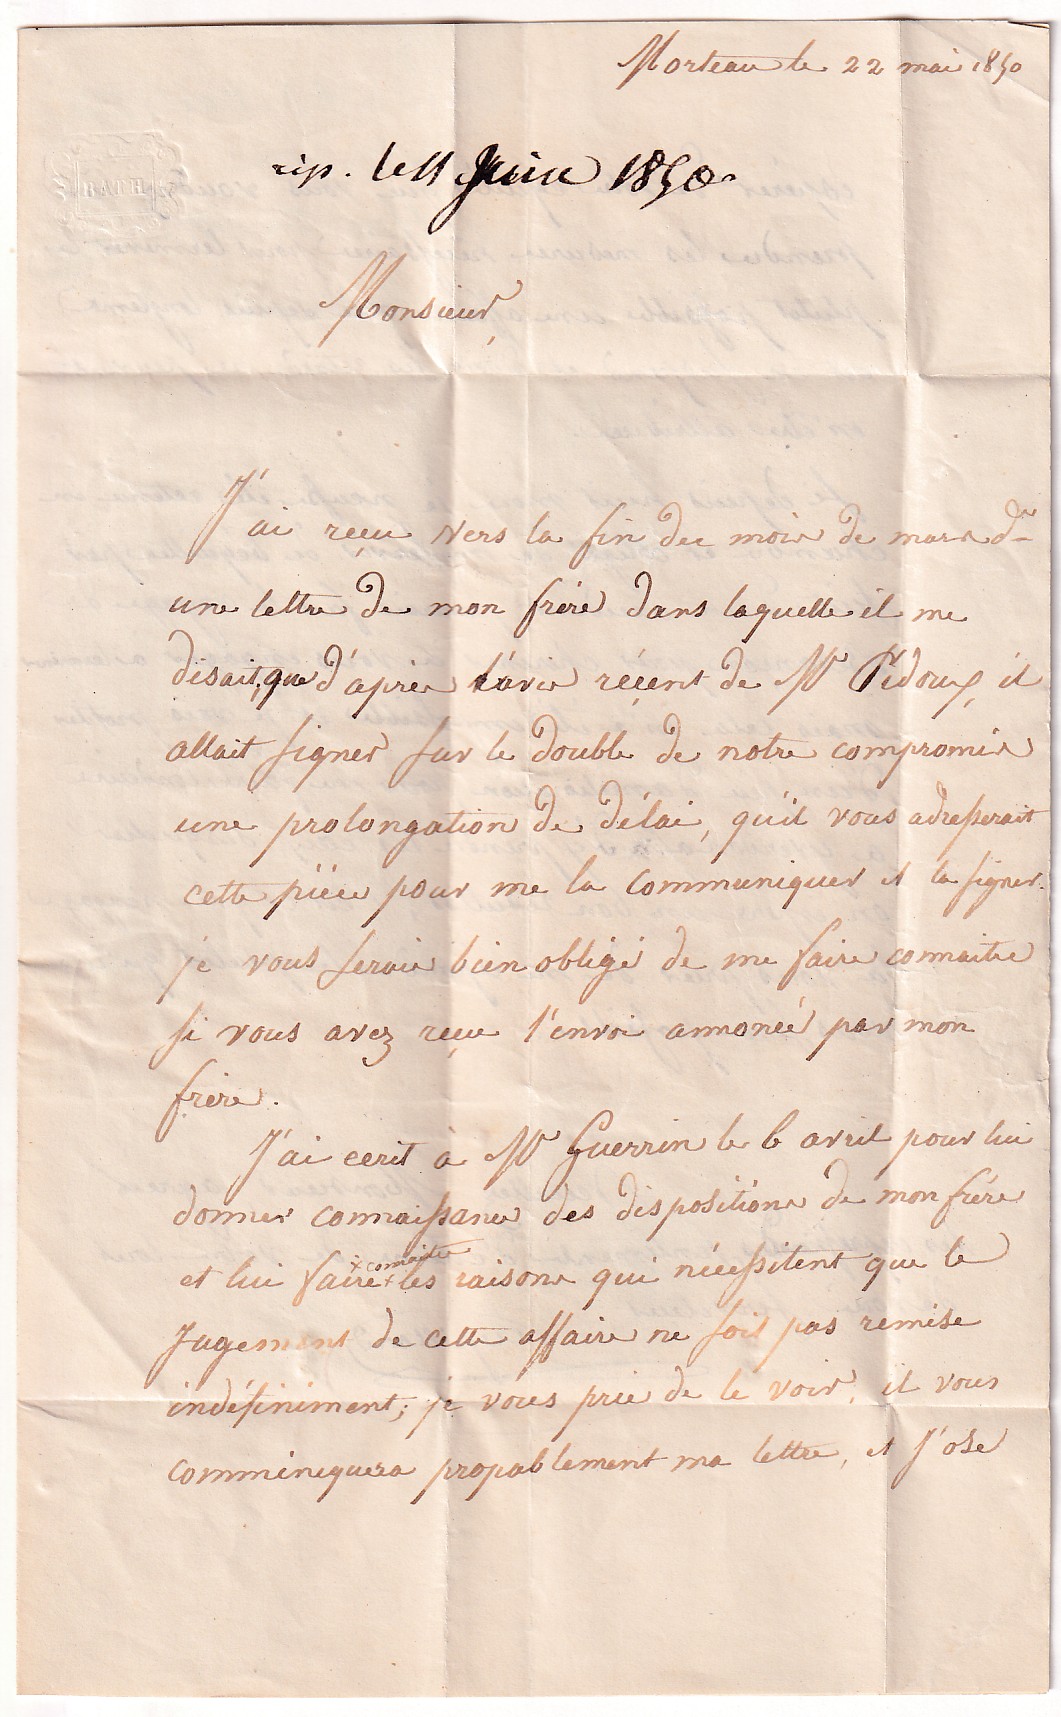 Morteau le 22 mai 1850
rép. le 11 Juin 1850
Monsieur,
J'ai reçu vers la fin du mois de mars dr
une lettre de mon frère dans laquelle il me
disait, que d'après l'avis récent de Mr Pidoux, il
allait signer sur le double de notre compromis
une prolongation de délai, qu'il vous adresserait
cette pièce pour me la communiquer et la signer.
je vous serais bien obligé de me faire connaitre
si vous avez reçu l'envoi annoncé par mon
frère.
J'ai ecrit à Mr Guerrin le 6 avril pour lui
donner connaissance des dispositions de mon frére
x connaitre
et lui faire x les raisons qui nécessitent que le
Jugement de cette affaire ne soit pas remise
indéfiniment; je vous prie de le voir, il vous
comminiquera propablement ma lettre, et J'ose
BATH